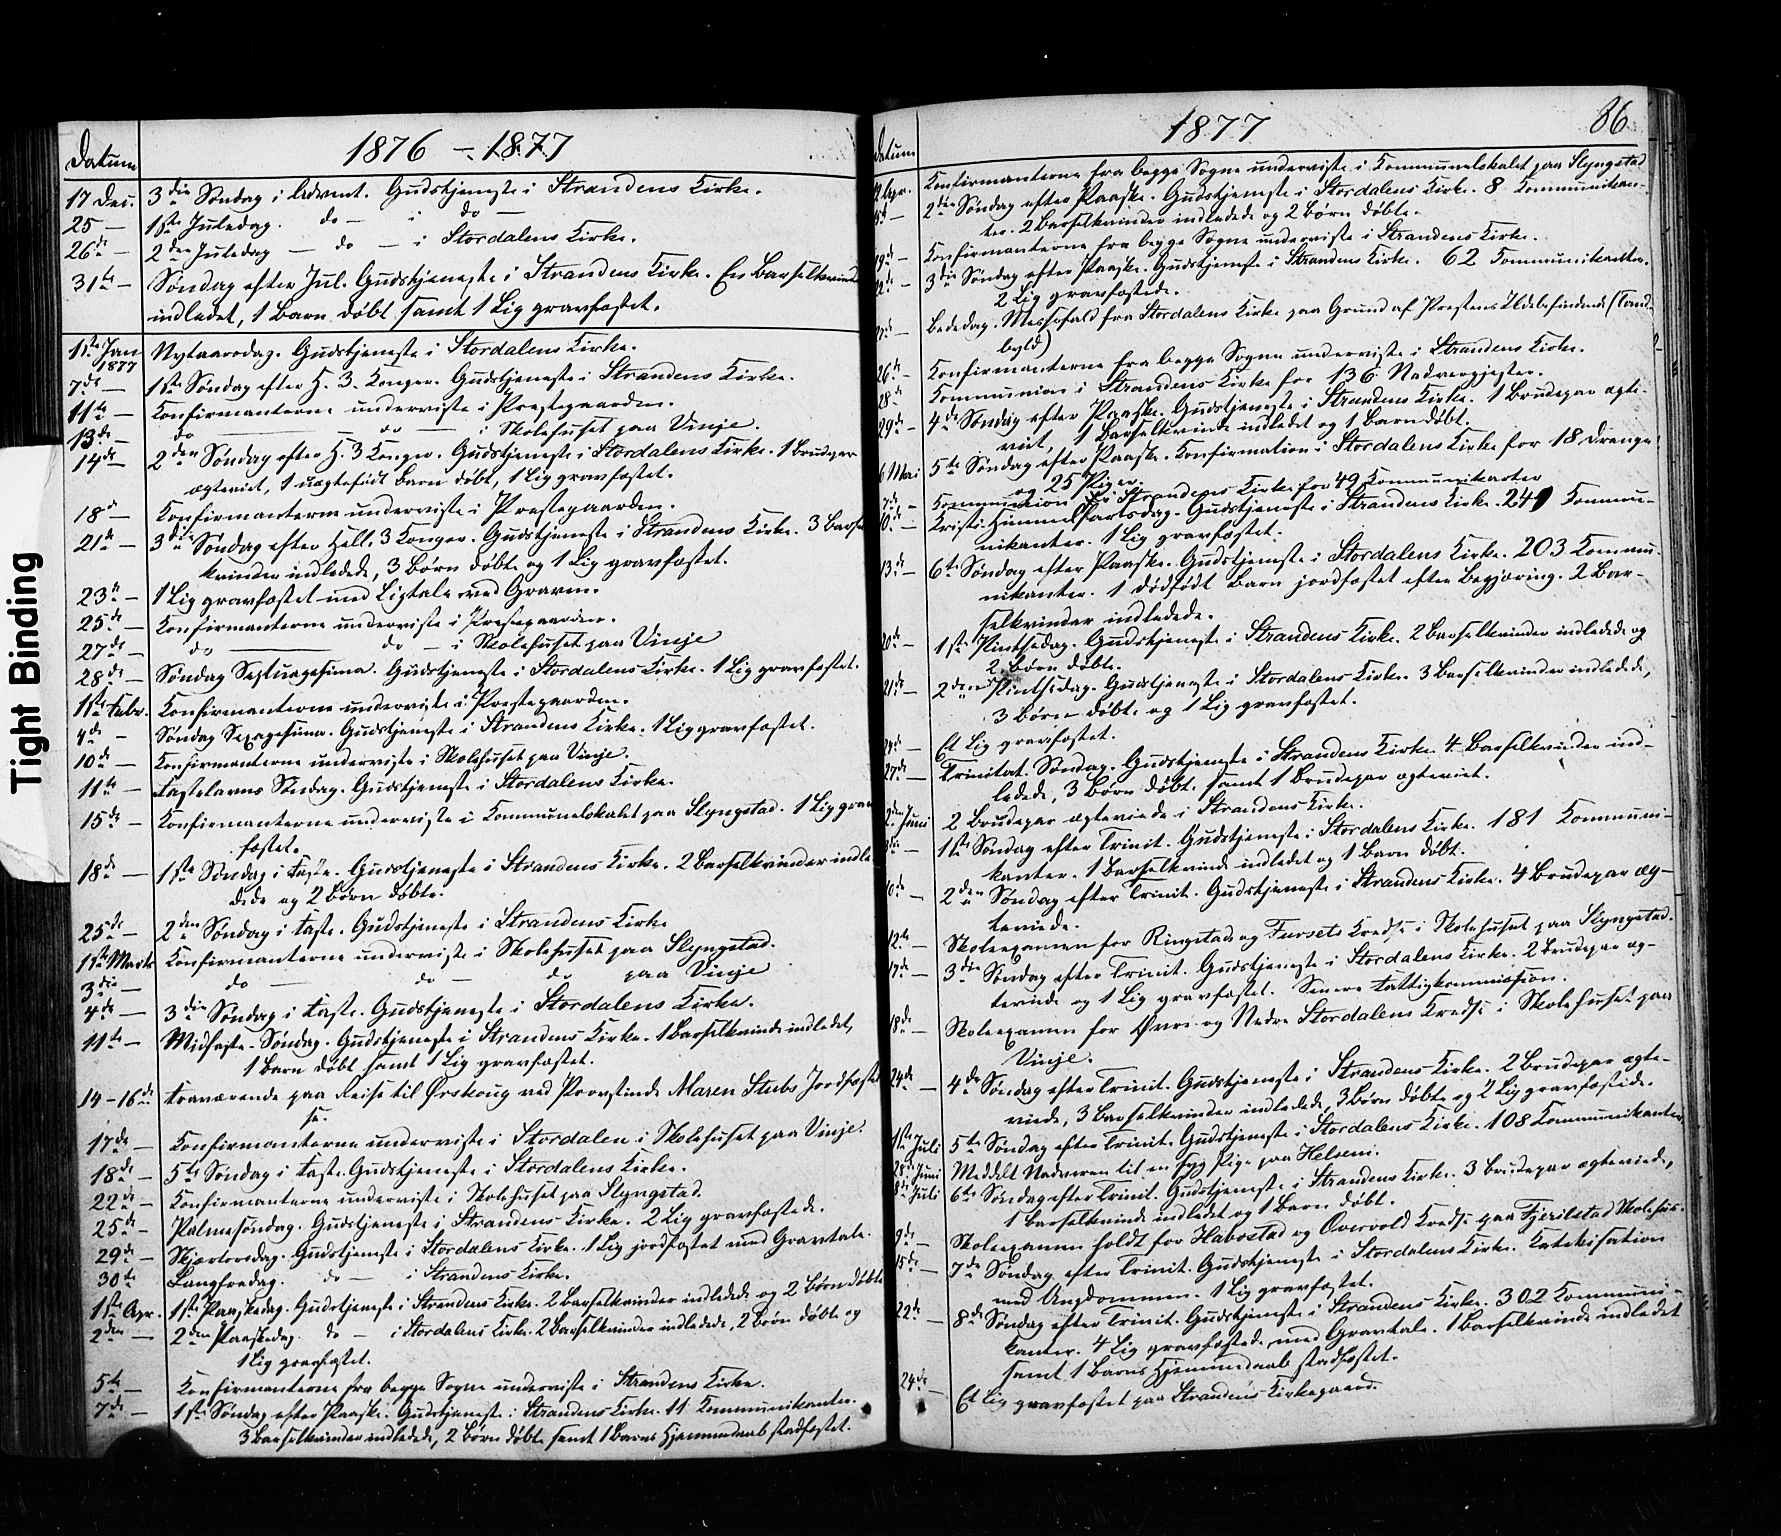 Tight Binding
Datum
1876 – 1877
17 Dec. 3die Søndag i Advent. Gudstjeneste i Strandens Kirke.
25 — 1ste Juledag. do — i do —
26de — 2den Juledag — do — i Stordalens Kirke.
31te — Søndag efter Jul. Gudstjeneste i Strandens Kirke. En Barselkvinde
indledet, 1 Barn døbt samt 1 Lig gravfæstet.
1ste Jan 1877 Nytaarsdag. Gudstjeneste i Stordalens Kirke.
7de — 1ste Søndag efter H. 3. Konger. Gudstjeneste i Strandens Kirke.
11te — Konfirmanterne underviste i Prestegaarden.
13de — do — do — i Skolehuset paa Vinje.
14de — 2den Søndag efter H. 3 Konger. Gudstjeneste i Stordalens Kirke. 1 Brudepar
ægteviet, 1 uægtefødt Barn døbt, 1 Lig gravfæstet.
18de — Konfirmanterne underviste i Prestegaarden.
21de — 3die Søndag efter Hell. 3 Konger. Gudstjeneste i Strandens Kirke. 3 Barsel
kvinder indledede, 3 Børn døbte og 1 Lig gravfæstet.
23de — 1 Lig gravfæstet med Ligtale ved Graven.
25de — Konfirmanterne underviste i Prestegaarden.
27de — do — do — i Skolehuset paa Vinje
28de — Søndag Septuagesima. Gudstjeneste i Stordalens Kirke. 1 Lig gravfæstet.
1ste Febr. Konfirmanterne underviste i Prestegaarden.
4de — Søndag Sexagesima. Gudstjeneste i Strandens Kirke. 1 Lig gravfæstet.
10de — Konfirmanterne underviste i Skolehuset paa Vinje.
11te — Fastelavns Søndag. Gudstjeneste i Stordalens Kirke.
15de — Konfirmanterne underviste i Kommunelokalet paa Slyngstad. 1 Lig grav
fæstet.
18de — 1ste Søndag i Faste. Gudstjeneste i Strandens Kirke. 2 Barselkvinder indle
dede og 2 Børn døbte.
25de — 2den Søndag i Faste. Gudstjeneste i Strandens Kirke
1ste Marts Konfirmanterne underviste i Skolehuset paa Slyngstad.
3die — do — do — do paa Vinje
4de — 3die Søndag i Faste. Gudstjeneste i Stordalens Kirke.
11te — Midfaste-Søndag. Gudstjeneste i Strandens Kirke. 1 Barselkvinde indledet,
1 Barn døbt samt 1 Lig gravfæstet.
14–16de Fraværende paa Reise til Ørskoug ved Provstinde Maren Stubs Jordfæstel
se.
17de — Konfirmanterne underviste i Stordalen i Skolehuset paa Vinje.
18de — 5te Søndag i Faste. Gudstjeneste i Stordalens Kirke.
22de — Konfirmanterne underviste i Skolehuset paa Slyngstad.
25de — Palmesøndag. Gudstjeneste i Strandens Kirke. 2 Lig gravfæstede.
29de — Skjærtorsdag. Gudstjeneste i Stordalens Kirke. 1 Lig jordfæstet med Gravtale.
30te — Langfredag. do — i Strandens Kirke.
1ste Apr. 1ste Paaskedag. Gudstjeneste i Strandens Kirke. 2 Barselkvinder indledede og 2 Børn døbte
2den — 2den Paaskedag. do — i Stordalens Kirke. 2 Barselkvinder indledede, 2 Børn døbte og
1 Lig gravfæstet.
5te — Konfirmanterne fra begge Sogne underviste i Strandens Kirke.
7de — 1ste Søndag efter Paaske. Gudstjeneste i Strandens Kirke. 11 Kommunikanter.
3 Barselkvinder indledede, 2 Børn døbte samt 1 Barns Hjemmedaab stadfæstet.
Datum
1877
86
Apr. Konfirmanterne fra begge Sogne underviste i Kommunelokalet paa Slyngstad
2den Søndag efter Paaske. Gudstjeneste i Stordalens Kirke. 8 Kommunikan-
ter. 2 Barselkvinder indledede og 2 Børn døbte.
Konfirmanterne fra begge Sogne underviste i Strandens Kirke.
3die Søndag efter Paaske. Gudstjeneste i Strandens Kirke. 62 Kommunikanter.
2 Lig gravfæstede.
Bededag. Messefald fra Stordalens Kirke paa Grund af Prestens Ildebefindende (Tand-
byld)
26de Konfirmanterne fra begge Sogne underviste i Strandens Kirke.
28de Kommunion i Strandens Kirke for 136 Nadvergjester.
29de — 4de Søndag efter Paaske. Gudstjeneste i Strandens Kirke. 1 Brudepar ægte-
viet, 1 Barselkvinde indledet og 1 Barn døbt.
6 Mai 5te Søndag efter Paaske. Konfirmation i Stordalens Kirke for 18 Drenge
og 25 Piger.
7de — Kommunion i Strandens Kirke for 49 Kommunikanter
10de — Kristi Himmelfartsdag. Gudstjeneste i Strandens Kirke. 241 Kommu-
nikanter. 1 Lig gravfæstet.
13de — 6te Søndag efter Paaske. Gudstjeneste i Stordalens Kirke. 203 Kommu-
nikanter. 1 dødfødt Barn jordfæstet efter Begjæring. 2 Bar-
selkvinder indledede.
20de — 1ste Pintsedag. Gudstjeneste i Strandens Kirke. 2 Barselkvinder indledede og
2 Børn døbte.
21de — 2den Pintsedag. Gudstjeneste i Stordalens Kirke. 3 Barselkvinder indledede,
3 Børn døbte og 1 Lig gravfæstet.
Et Lig gravfæstet.
27de — Trinitat. Søndag. Gudstjeneste i Strandens Kirke. 4 Barselkvinder ind-
ledede, 3 Børn døbte samt 1 Brudepar ægteviet.
2den Juni 2 Brudepar ægteviede i Strandens Kirke.
3die — 1ste Søndag efter Trinit. Gudstjeneste i Stordalens Kirke. 181 Kommuni-
kanter. 1 Barselkvinde indledet og 1 Barn døbt.
10de — 2den Søndag efter Trinit. Gudstjeneste i Strandens Kirke. 4 Brudepar æg-
teviede.
12te — Skoleexamen for Ringstads og Fursets Kredse i Skolehuset paa Slyngstad.
17de — 3die Søndag efter Trinit. Gudstjeneste i Stordalens Kirke. 2 Brudepar æg-
teviede og 1 Lig gravfæstet. Senere Fattigkommission.
18de — Skoleexamen for Øvre og Nedre Stordalens Kredse i Skolehuset paa
Vinje.
24de — 4de Søndag efter Trinit. Gudstjeneste i Strandens Kirke. 2 Brudepar ægte-
viede, 3 Barselkvinder indledede, 3 Børn døbte og 2 Lig gravfæstede.
1ste Juli 5te Søndag efter Trinit. Gudstjeneste i Stordalens Kirke. 108 Kommunikanter
28de Juni Meddelt Nadveren til en syg Pige paa Helsem.
8de Juli 6te Søndag efter Trinit. Gudstjeneste i Strandens Kirke. 3 Brudepar ægteviede,
1 Barselkvinde indledet og 1 Barn døbt.
9de — Skoleexamen holdt for Habostad og Overvold Kredse paa Fjerilstad Skolehus.
15de — 7de Søndag efter Trinit. Gudstjeneste i Stordalens Kirke. Katekisation
med Ungdommen. 1 Lig gravfæstet.
22de — 8de Søndag efter Trinit. Gudstjeneste i Strandens Kirke. 302 Kommuni-
kanter. 4 Lig gravfæstede med Gravtale. 1 Barselkvinde indledet
samt 1 Barns Hjemmedaab stadfæstet.
24de — Et Lig gravfæstet paa Strandens Kirkegaard.